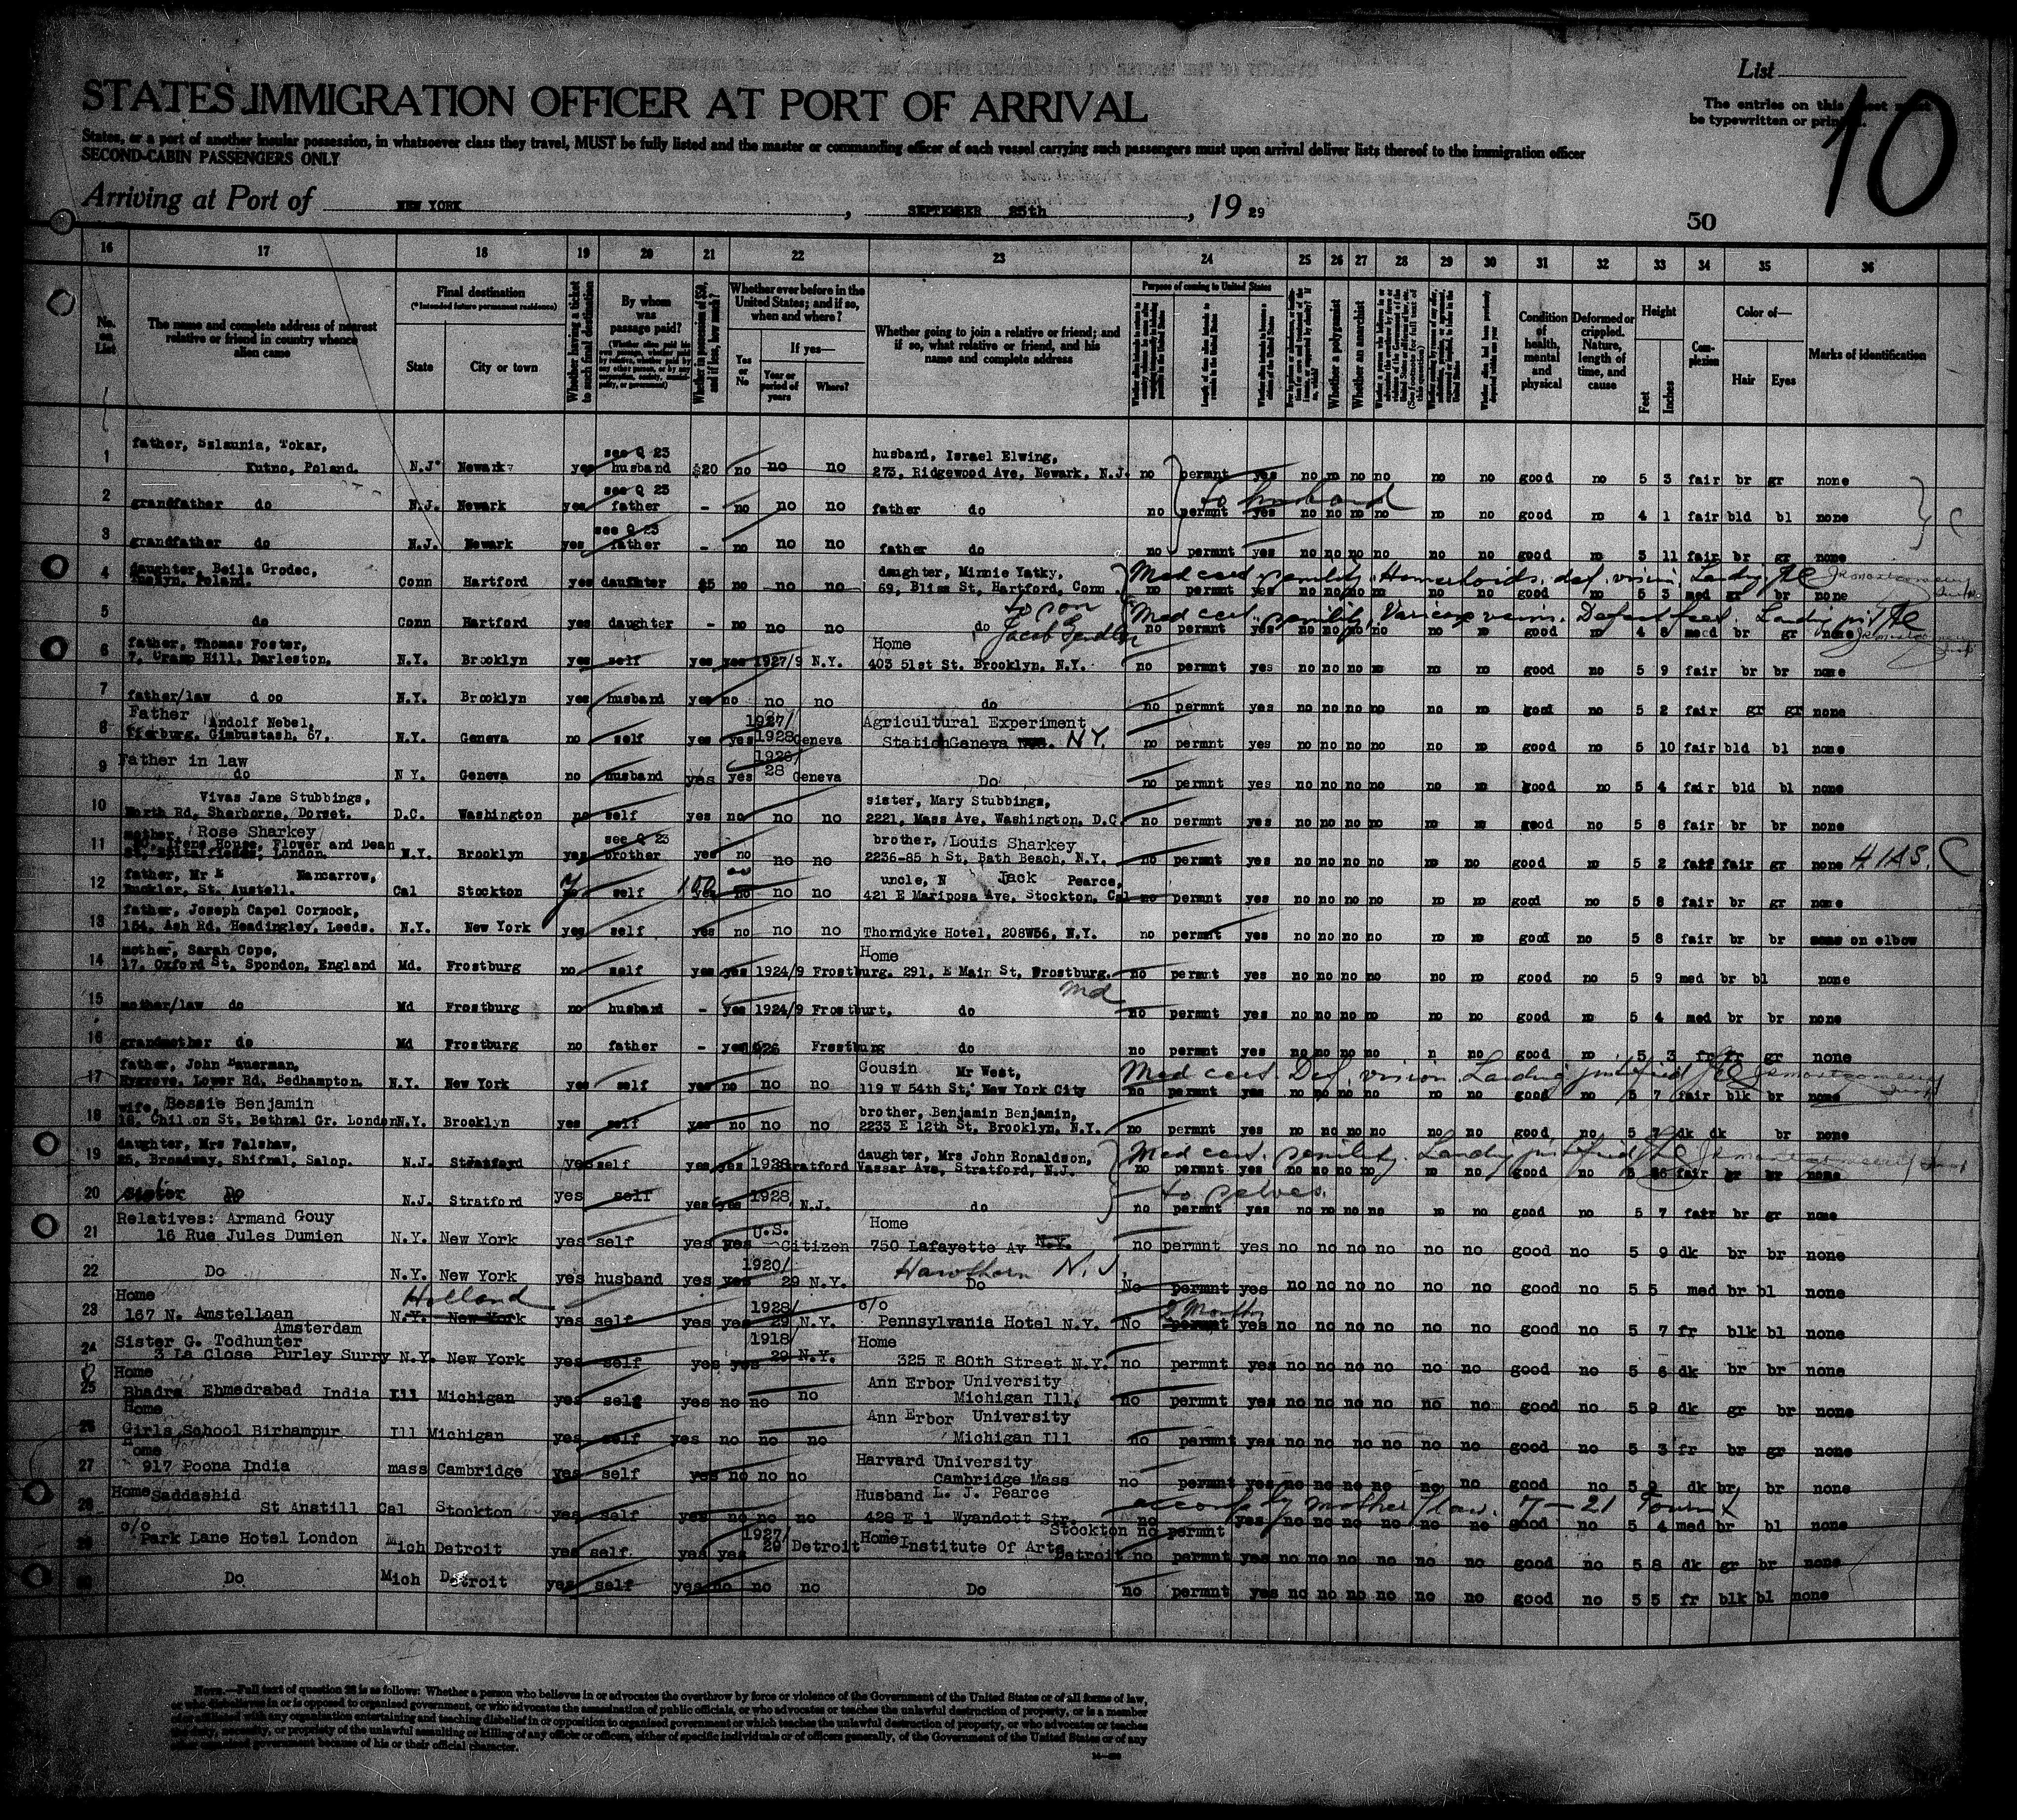 List
The entries on this sheet must
be typewritten or printed.
10
STATES IMMIGRATION OFFICER AT PORT OF ARRIVAL
States, or a port of another insular possession, in whatsoever class they travel, MUST be fully listed and the master or commanding officer of each vessel carrying such passengers must upon arrival deliver lists thereof to the immigration officer
SECOND-CABIN PASSENGERS ONLY
Arriving at Port of NEW YORK, SEPTEMBER 25th, 19 29
50
16 17 18 19 20 21 22 23 24 25 26 27 28 29 30 31 32 33 34 35 36
No. on List
The name and complete address of nearest relative or friend in country whence alien came
Final destination
(*Intended future permanent residence)
State City or town
Whether having a ticket to such final destination
By whom was passage paid?
Whether in possession of $50, and if less, how much?
Whether ever before in the United States; and if so, when and where?
Yes or No
If yes—
Year or period of years
Where?
Whether going to join a relative or friend; and if so, what relative or friend, and his name and complete address
Purpose of coming to United States
Whether a polygamist
Whether an anarchist
Condition of health, mental and physical
Deformed or crippled. Nature, length of time, and cause
Height
Feet Inches
Complexion
Color of—
Hair Eyes
Marks of identification
1 father, Szlaunia, Tokar,
Kutno, Poland. N.J. Newark yes see Q 23 husband $20 no no no husband, Israel Elwing,
273, Ridgewood Ave, Newark, N.J. no permnt yes no no no no no no good no 5 3 fair br gr none
to husband
2 grandfather do N.J. Newark yes see Q 23 father - no no no father do no permnt yes no no no no no no good no 4 1 fair bld bl none
3 grandfather do N.J. Newark yes see Q 23 father - no no no father do no permnt yes no no no no no no good no 3 11 fair br gr none
4 daughter, Beila Grodec,
Poland. Conn Hartford yes daughter $5 no no no daughter, Minnie Yatky,
69, Bliss St, Hartford, Conn no permnt yes no no no no no no good no 5 3 med gr br none
Med cert. senility. Hemorrhoids. def. vision. Landing
5 do Conn Hartford yes daughter - no no no do no permnt yes no no no no no no good no 4 8 med br gr none
to son Jacob Gendler
Med cert. senility. Varicose veins. Landing
6 father, Thomas Foster,
7, Cramp Hill, Darleston. N.Y. Brooklyn yes self yes yes 1927/9 N.Y. Home
403 51st St. Brooklyn. N.Y. no permnt yes no no no no no no good no 5 9 fair br br none
7 father/law d oo N.Y. Brooklyn yes husband yes no no no do no permnt yes no no no no no no good no 5 2 fair gr gr none
8 Father Andolf Nebel,
Gimbustash, 67. N.Y. Geneva no self yes yes 1927/ 1928 Geneva Agricultural Experiment
Station Geneva N.Y. no permnt yes no no no no no no good no 5 10 fair bld bl none
9 Father in law
do N Y. Geneva no husband yes yes 1926/ 28 Geneva Do no permnt yes no no no no no no good no 5 4 fair bld bl none
10 Vivas Jane Stubbings,
North Rd, Sherborne, Dorset. D.C. Washington no self yes no no no sister, Mary Stubbings,
2221, Mass Ave, Washington, D.C. no permnt yes no no no no no no good no 5 8 fair br br none
11 mother, Rose Sharkey
Irene House, Flower and Dean
St, Spitalfields, London. N.Y. Brooklyn yes see Q 23 brother yes no no no brother, Louis Sharkey
2236-85 h St, Bath Beach, N.Y. no permnt yes no no no no no no good no 5 2 fair fair gr none HIAS.
12 father, Mr Nancarrow,
Buckler, St. Austell. Cal Stockton self 100 no no no uncle, N Jack Pearce,
421 E Mariposa Ave, Stockton, Cal no permnt yes no no no no no no good no 5 8 fair br gr none
13 father, Joseph Capel Cornock,
154, Ash Rd, Headingley, Leeds. N.Y. New York yes self yes no no no Thorndyke Hotel, 208W56, N.Y. no permnt yes no no no no no no good no 5 8 fair br br on elbow
14 mother, Sarah Cope,
17, Oxford St, Spondon, England Md. Frostburg no self yes yes 1924/9 Frostburg. Home
291, E Main St, Frostburg. Md no permnt yes no no no no no no good no 5 9 med br bl none
15 mother/law do Md Frostburg no husband - yes 1924/9 Frostburt. do no permnt yes no no no no no no good no 5 4 med br br none
16 grandmother do Md Frostburg no father - yes 1926 Frostburg do no permnt yes no no no no n no good no 5 3 fr fr gr none
17 father, John Sauerman,
Hygrove, Lower Rd, Bedhampton. N.Y. New York yes self yes no no no Cousin Mr West,
119 W 54th St, New York City no permnt yes no no no no no no good no 5 7 fair blk br none
Med cert. Def. vision. Landing justified
18 wife, Bessie Benjamin
18, Chil on St, Bethnal Gr. London N.Y. Brooklyn yes self yes no no no brother, Benjamin Benjamin,
2233 E 12th St, Brooklyn, N.Y. no permnt yes no no no no no no good no 5 7 dk dk br none
19 daughter, Mrs Falshaw,
25, Broadway, Shifnal, Salop. N.J. Stratford yes self yes yes 1928 Stratford daughter, Mrs John Ronaldson,
Vassar Ave, Stratford, N.J. no permnt yes no no no no no no good no 5 6 fair gr br none
Med cert. senility. Landing justified
20 Sister Do N.J. Stratford yes self yes yes 1928 N.J. do no permnt yes no no no no no no good no 5 7 fair br gr none
to selves.
21 Relatives: Armand Gouy
16 Rue Jules Dumien N.Y. New York yes self yes yes U.S. Citizen Home
750 Lafayette Av N.Y. no permnt yes no no no no no no good no 5 9 dk br br none
Hawthorn N.J.
22 Do N.Y. New York yes husband yes yes 1920/ 29 N.Y. Do No permnt yes no no no no no no good no 5 5 med br bl none
23 Home
167 N. Amstellaan
Amsterdam Holland N.Y. New York yes self yes yes 1928/ 29 N.Y. c/o
Pennsylvania Hotel N.Y. No 2 Months permnt yes no no no no no no good no 5 7 fr blk bl none
24 Sister G. Todhunter
3 La Close Purley Surry N.Y. New York yes self yes yes 1918/ 29 N.Y. Home
325 E 80th Street N.Y. no permnt yes no no no no no no good no 5 6 dk br br none
25 Home
Bhadra Ehmedrabad India Ill Michigan yes self yes no no no Ann Erbor University
Michigan Ill, no permnt yes no no no no no no good no 5 9 dk gr br none
26 Home
Girls School Birhampur Ill Michigan yes self yes no no no Ann Erbor University
Michigan Ill no permnt yes no no no no no no good no 5 3 fr br gr none
27 Home
917 Poona India mass Cambridge yes self yes no no no Harvard University
Cambridge Mass no permnt yes no no no no no no good no 5 9 dk br br none
28 Home Saddashid
St Anstill Cal Stockton yes self yes no no no Husband L. J. Pearce
428 E 1 Wyandott Str. Stockton no permnt yes no no no no no no good no 5 4 med br bl none
mother/law. 7-21 Tourist
29 c/o
Park Lane Hotel London Mich Detroit yes self yes yes 1927/ 29 Detroit Home Institute Of Arts
Detroit no permnt yes no no no no no no good no 5 8 dk gr br none
30 Do Mich Detroit yes self yes no no no Do no permnt yes no no no no no no good no 5 5 fr blk bl none
NOTE.—Full text of question 28 is as follows: Whether a person who believes in or advocates the overthrow by force or violence of the Government of the United States or of all forms of law,
or who disbelieves in or is opposed to organized government, or who advocates the assassination of public officials, or who advocates or teaches the unlawful destruction of property, or is a member
of or affiliated with any organization entertaining and teaching disbelief in or opposition to organized government or which teaches the unlawful destruction of property, or who advocates or teaches
the duty, necessity, or propriety of the unlawful assaulting or killing of any officer or officers, either of specific individuals or of officers generally, of the Government of the United States or of any
other organized government because of his or their official character.